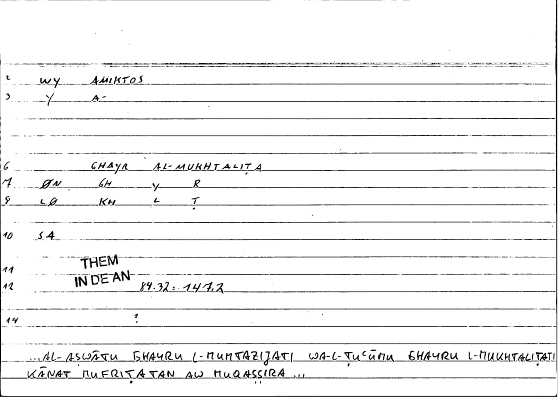 2 WY AMIKTOS
3 Y A-
6 GHAYR AL-MUKHTALIṬA
7 ØN GH Y R
9 LØ KH L Ṭ
10 SA
11 THEM
IN DE AN
12 84.32: 147.2
14 ?
...AL-AṢWĀTU GHAYRU L-MUMTAZIJATI WA-L-ṬUʿŪMU GHAYRU L-MUKHTALIṬATI
KĀNAT MUFRIṬATAN AW MUQAṢṢIRA ...